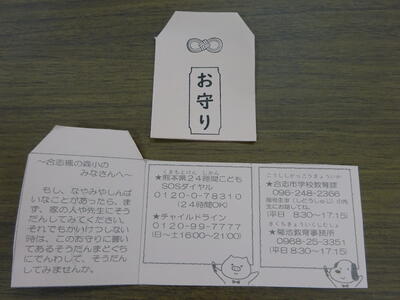 お守り
~合志楓の森小の
みなさんへ~
もし、なやみやしんぱ
いなことがあったら、ま
ず、家の人や先生にそう
だんしてみてください。
それでもかいけつしない
時は、このお守りに書い
てあるそうだんまどぐち
にでんわして、そうだん
してみませんか。
くまもとけん じかん
★熊本県24時間こども
SOSダイヤル
0120-0-78310
(24時間OK)
★チャイルドライン
0120-99-7777
(日~土16:00~21:00)
こうししがっこうきょういくか
★合志市学校教育課
096-248-2366
先生にお話してね。
(平日 8:30~17:15)
きくちきょういくじむしょ
★菊池教育事務所
0968-25-3351
(平日 8:30~17:15)